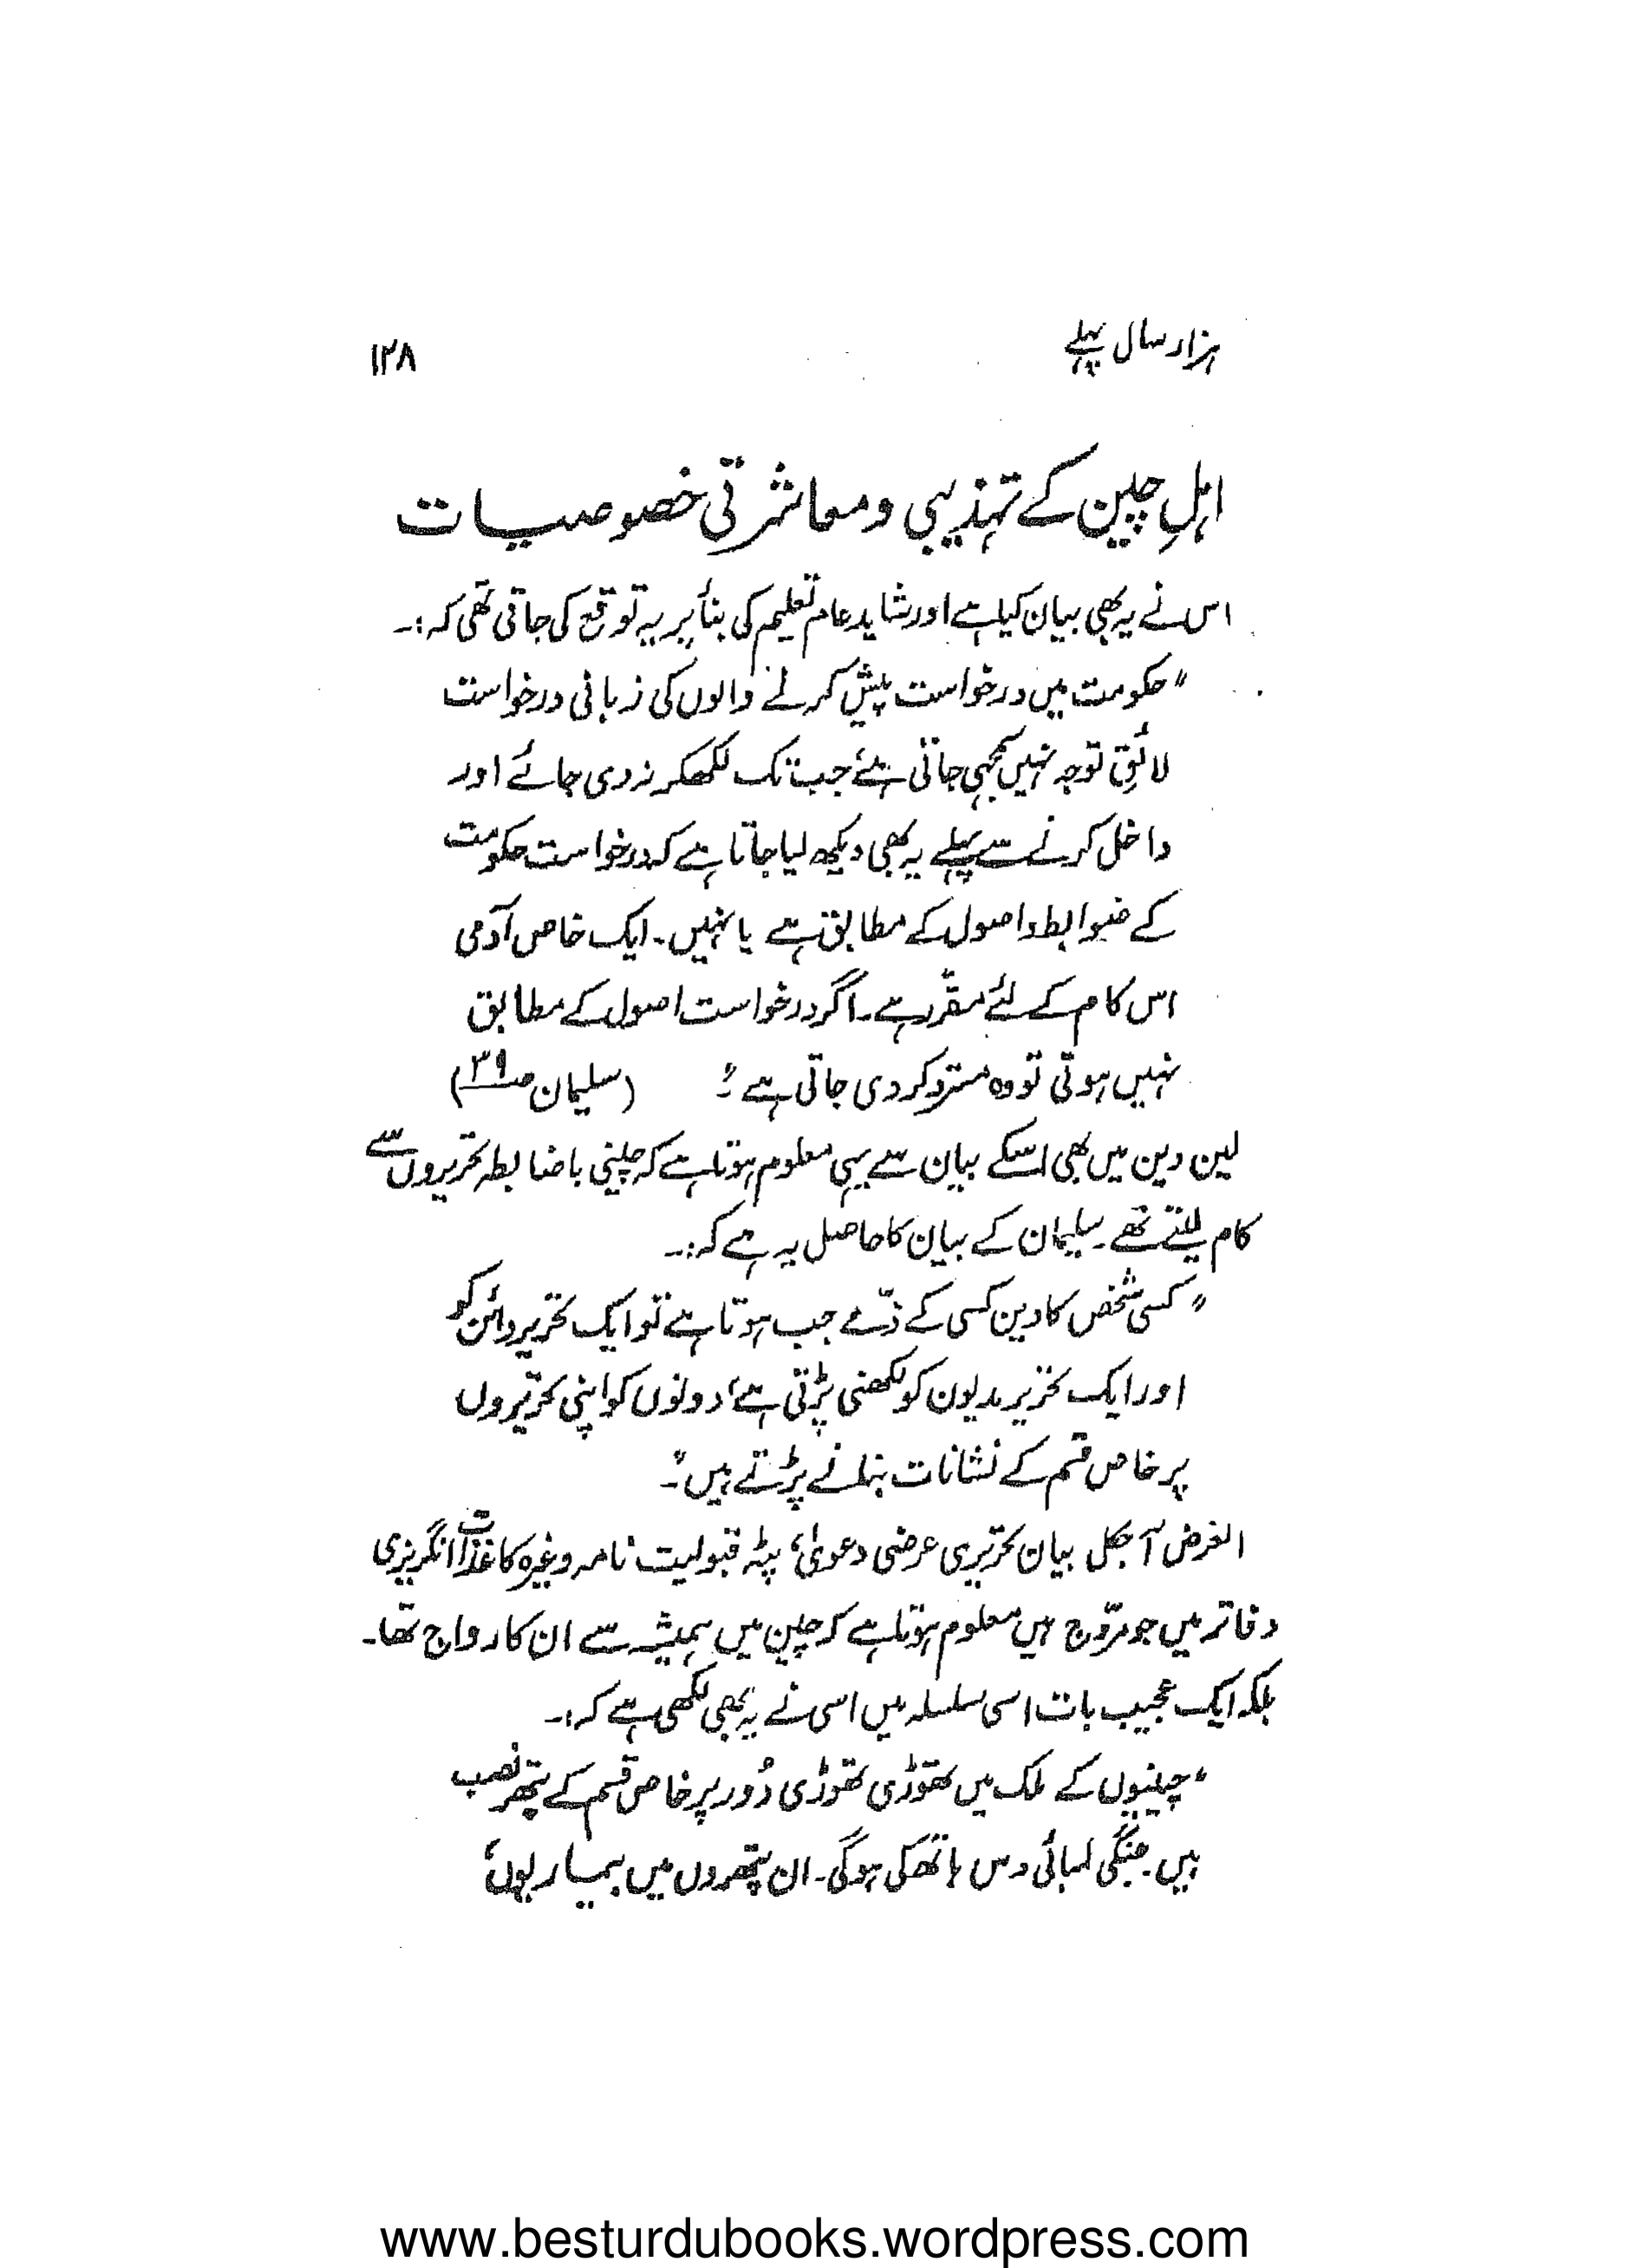 ہزار سال پہلے
۱۲۸
اہلِ چین کے تہذیبی و معاشرتی خصوصیات
اس نے یہ بھی بیان کیا ہے اور شاید عام تعلیم کی بنأ پر یہ توقع کی جاتی تھی کہ:۔
"حکومت میں درخواست پیش کرنے والوں کی زبانی درخواست
لائقِ توجہ نہیں سمجھی جاتی ہے، جب تک لکھکر نہ دی جائے اور
داخل کرنے سے پہلے یہ بھی دیکھ لیا جاتا ہے کہ درخواست حکومت
کے ضوابط و اصول کے مطابق ہے یا نہیں۔ ایک خاص آدمی
اس کام کے لئے مقرّر ہے۔ اگر درخواست اصول کے مطابق
نہیں ہوتی تو وہ مسترد کر دی جاتی ہے"۔ (سلیمان صـ۳۹)
لین دین میں بھی اسکے بیان سے یہی معلوم ہوتا ہے کہ چینی باضابطہ تحریروں سے
کام لیتے تھے۔ سلیمان کے بیان کا حاصل یہ ہے کہ:۔
"کسی شخص کا دین کسی کے ذمّے جب ہوتا ہے تو ایک تحریر دائن کو
اور ایک تحریر مدیون کو لکھنی پڑتی ہے، دونوں کو اپنی تحریروں
پر خاص قسم کے نشانات بنانے پڑتے ہیں"۔
الغرض آجکل بیان تحریری عرضی دعویٰ، پٹہ قبولیت نامہ وغیرہ کاغذات انگریزی
دفاتر میں جو مروّج ہیں معلوم ہوتا ہے کہ چین میں ہمیشہ سے ان کا رواج تھا۔
بلکہ ایک عجیب بات اسی سلسلہ میں اسی نے یہ بھی لکھی ہے کہ:۔
"چینیوں کے ملک میں تھوڑی تھوڑی دُور پر خاص قسم کے پتھر نصب
ہیں۔ جنکی لمبائی دس ہاتھ کی ہوگی۔ ان پتھروں میں بیماریوں،
www.besturdubooks.wordpress.com